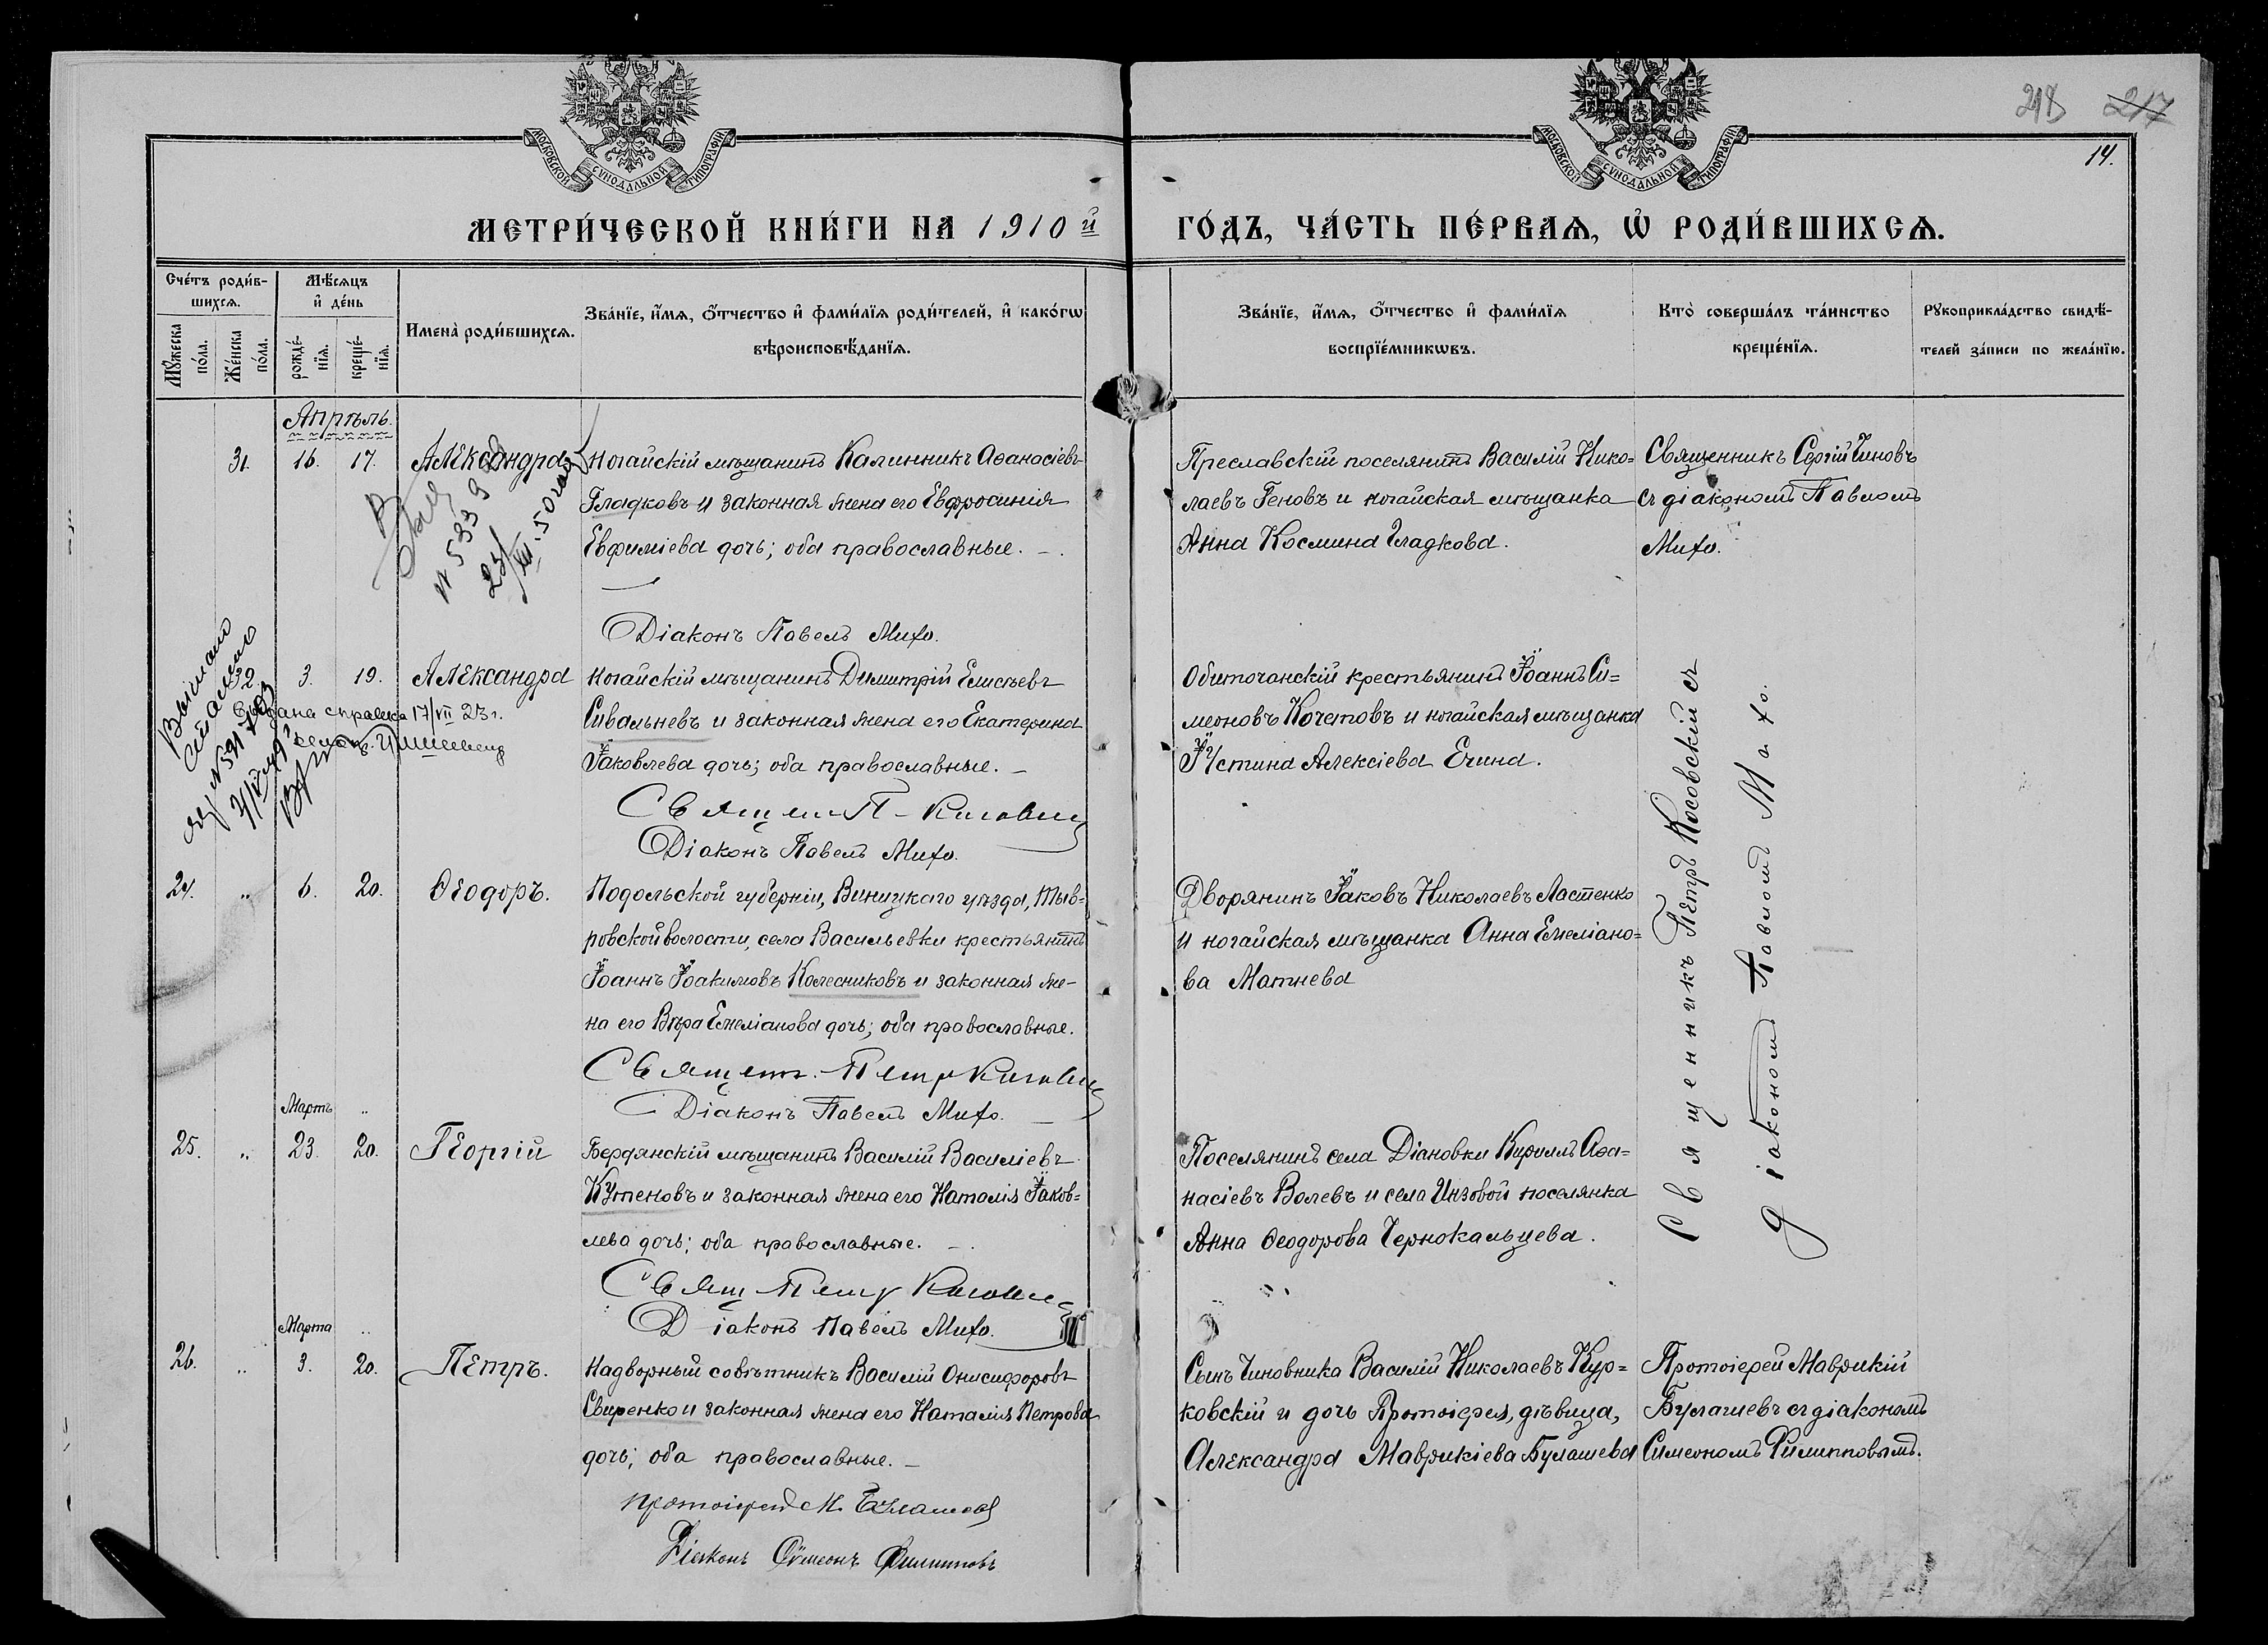 218 217
14.
МОСКОВСКОЙ СУНОДАЛЬНОЙ ТИПОГРАФІИ
МОСКОВСКОЙ СУНОДАЛЬНОЙ ТИПОГРАФІИ
МЕТРИ́ЧЕСКОЙ КНИ́ГИ НА 1910й ГО́ДЪ, ЧА́СТЬ ПЕ́РВАѦ, Ѡ҆ РОДИ́ВШИХСѦ.
Сче́тъ роди́в-
шихсѧ.
Мꙋжеска по́ла.
Же́нска по́ла.
Мѣ́сѧцъ
и҆ де́нь
рожде́-
нїѧ.
креще́-
нїѧ.
Имена̀ роди́вшихсѧ.
Зва́нїе, и҆́мѧ, ѻ҆́тчество и҆ фами́лїѧ роди́телей, и҆ како́гѡ
вѣроисповѣ́данїѧ.
Зва́нїе, и҆́мѧ, ѻ҆́тчество и҆ фами́лїѧ
воспрїе́мникѡвъ.
Кто̀ соверша́лъ та́инство
креще́нїѧ.
Рꙋкоприкла́дство свидѣ́-
телей за́писи по жела́нїю.
Апрѣль.
31. 16. 17. Александра
Ногайскій мѣщанинъ Калинникъ Аѳанасіевъ
Гладковъ и законная жена его Евфросинія
Евфиміева дочь; оба православные. –.
Діаконъ Павелъ Михо.
Преславскій поселянинъ Василій Нико=
лаевъ Геновъ и ногайская мѣщанка
Анна Космина Гладкова.
Священникъ Сергій Чиновъ
съ діакономъ Павломъ
Михо.
№ 5339
23/XII.50 года
32 3. 19. Александра
Выдана справка 17/VII 23 г.
Ногайскій мѣщанинъ Димитрій Елисѣевъ
Сивальневъ и законная жена его Екатерина
Іаковлева дочь; оба православные. –
Діаконъ Павелъ Михо.
Обиточанскій крестьянинъ Іоаннъ Си=
меоновъ Кочетовъ и ногайская мѣщанка
Іустина Алексіева Ечина.
Священникъ Петръ Косовскій съ
діакономъ Павломъ Михо.
24. „ 6. 20. Ѳеодоръ.
Подольской губерніи, Виницкаго уѣзда, Тыв=
ровской волости, села Васильевки крестьянинъ
Іоаннъ Іоакимовъ Колесниковъ и законная же-
на его Вѣра Емеліанова дочь; оба православные.
Діаконъ Павелъ Михо.
Дворянинъ Іаковъ Николаевъ Ластенко
и ногайская мѣщанка Анна Емеліано=
ва Матнева
Мартъ „
25. „ 23. 20. Георгій
Бердянскій мѣщанинъ Василій Василіевъ
Кутеновъ и законная жена его Наталія Іаков=
лева дочь; оба православные. –.
Діаконъ Павелъ Михо.
Поселянинъ села Діановки Кириллъ Аѳа=
насіевъ Волевъ и села Инзовой поселянка
Анна Ѳеодорова Чернокальцева.
Марта „
26. „ 3. 20. Петръ.
Надворный совѣтникъ Василій Онисифоровъ
Свиренко и законная жена его Наталія Петрова
дочь; оба православные. –
Протоіерей М. Булашевъ
Діаконъ Сѵмеонъ Филипповъ
Сынъ чиновника Василій Николаевъ Кур=
ковскій и дочь Протоіерея, дѣвица,
Александра Маврикіева Булашева
Протоіерей Маврикій
Булашевъ съ діакономъ
Симеономъ Филипповымъ.